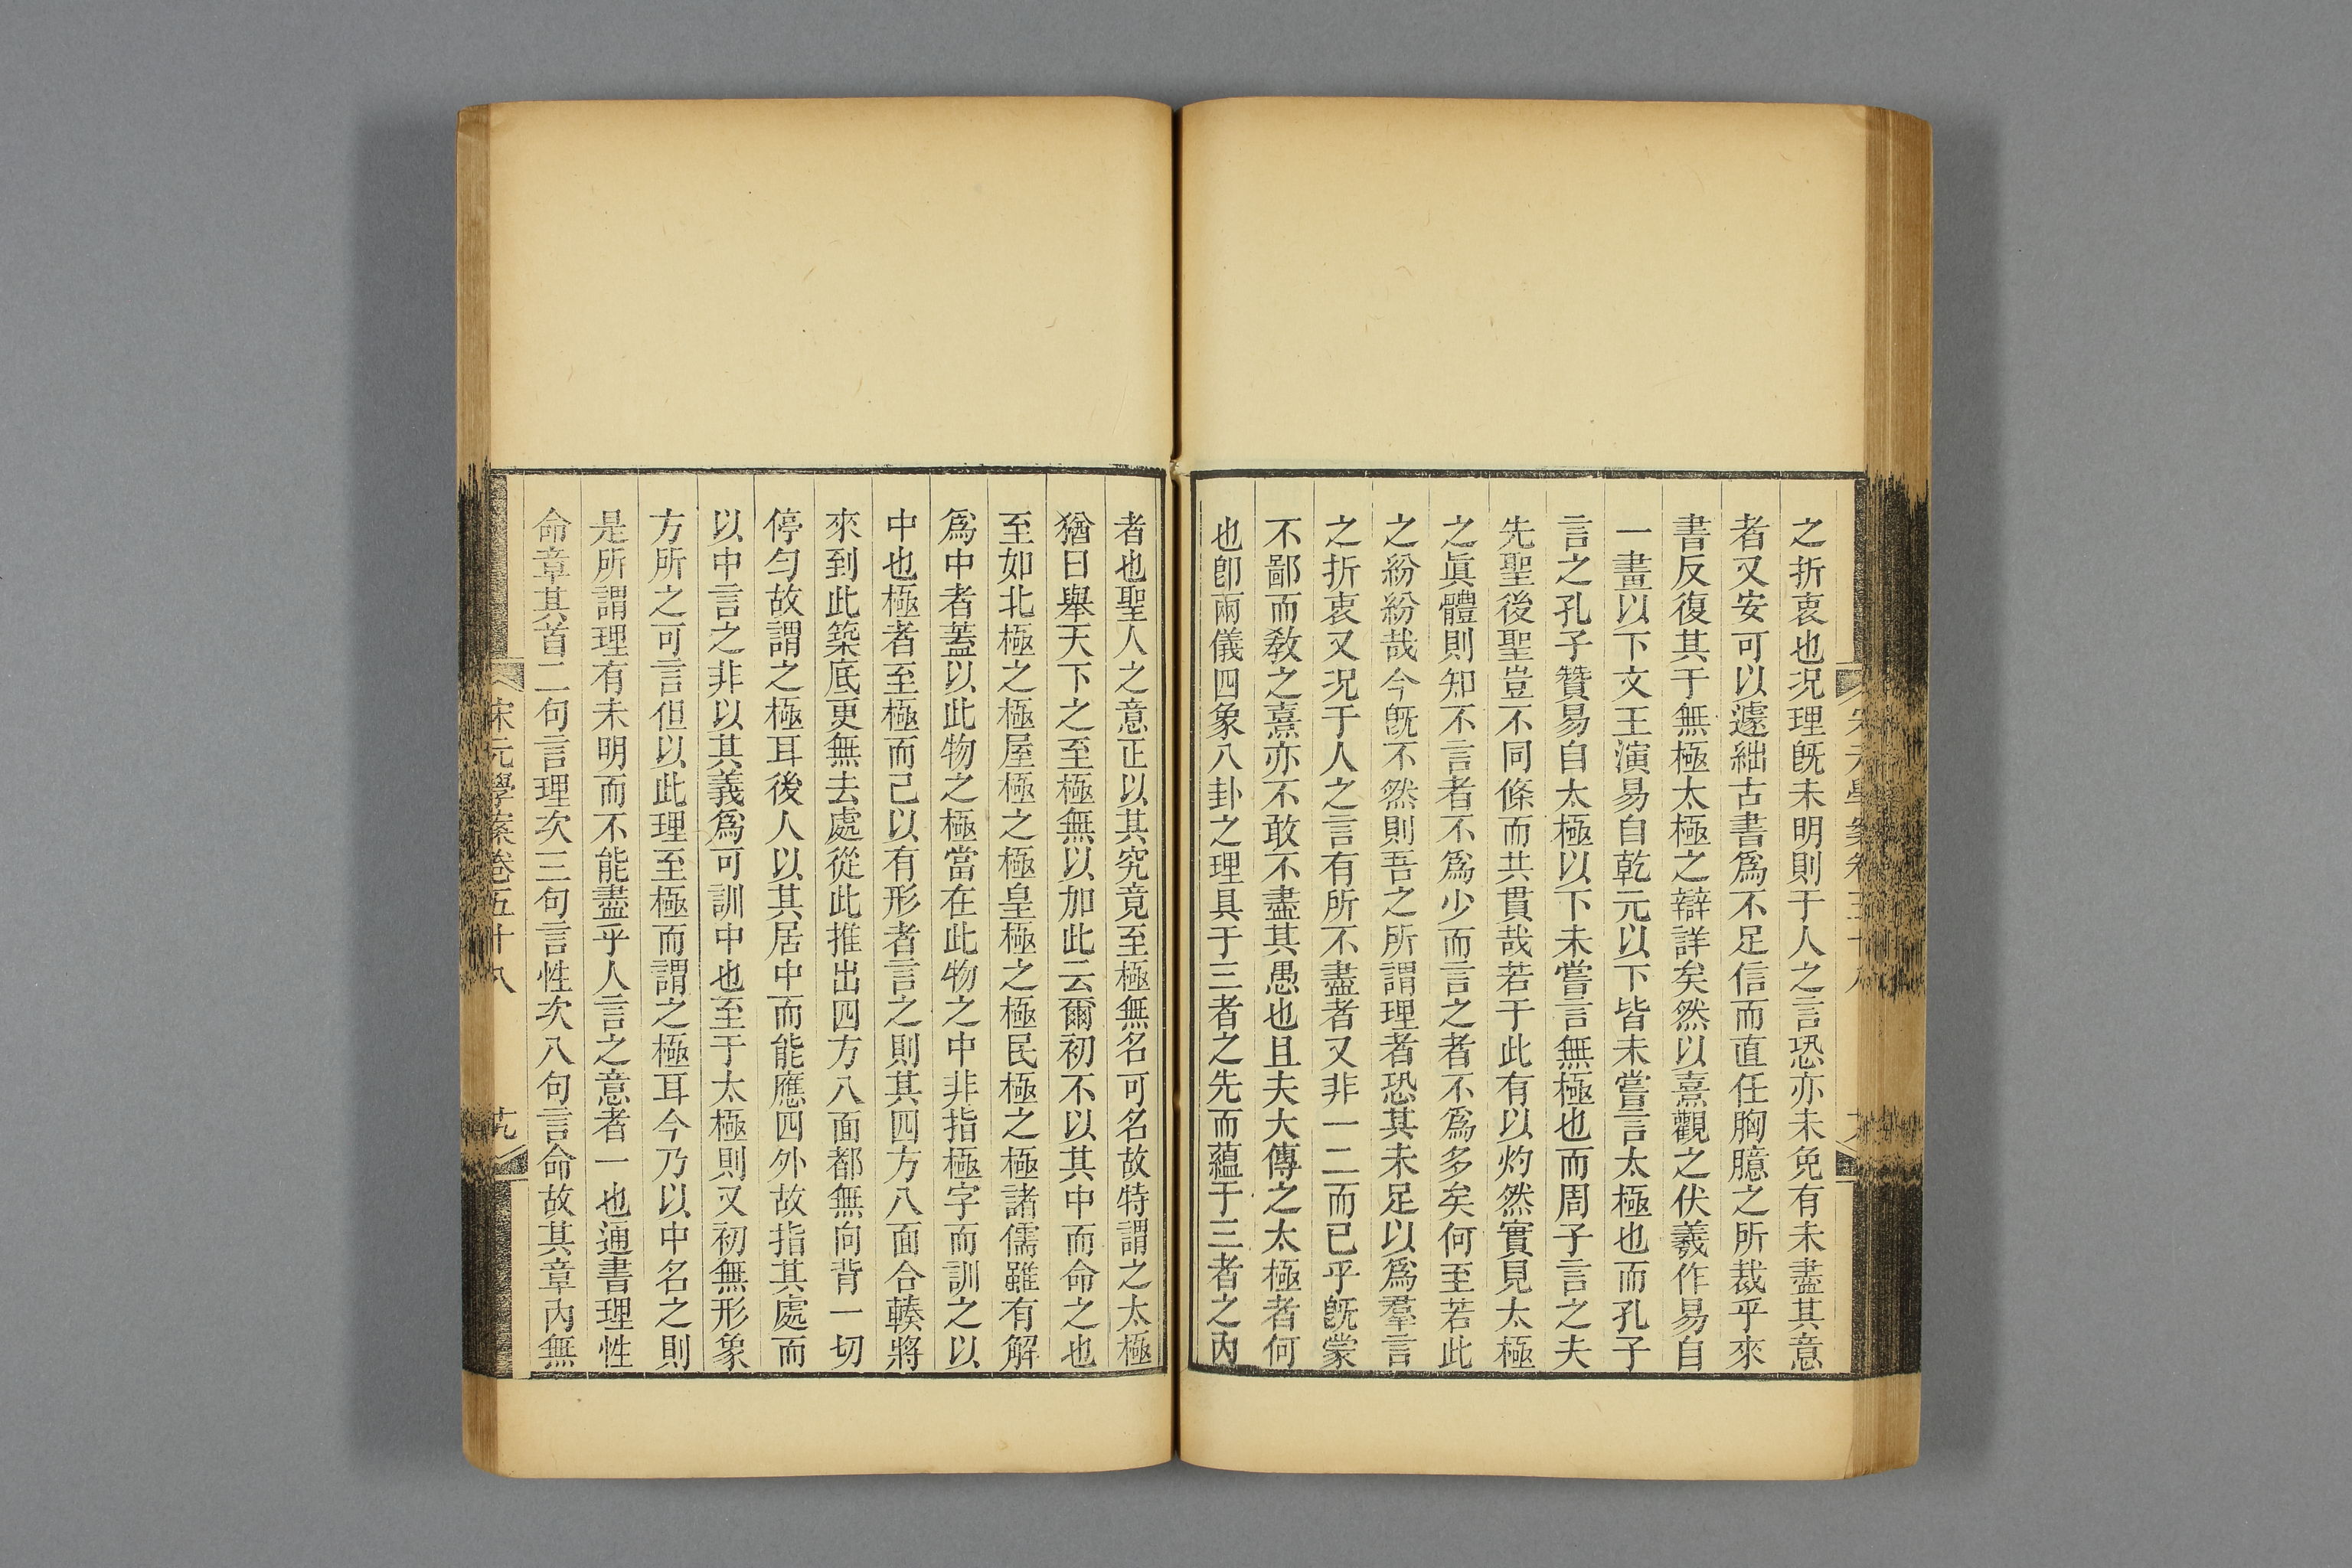 之折衷也况理既未明則于人之言恐亦未免有未盡其意
者又安可以遽絀古書爲不足信而直任胸臆之所裁乎來
書反復其于無極太極之辯詳矣然以熹觀之伏羲作易自
一畫以下文王演易自乾元以下皆未嘗言太極也而孔子
言之孔子贊易自太極以下未嘗言無極也而周子言之夫
先聖後聖豈不同條而共貫哉若于此有以灼然實見太極
之眞體則知不言者不爲少而言之者不爲多矣何至若此
之紛紛哉今既不然則吾之所謂理者恐其未足以爲羣言
之折衷又况于人之言有所不盡者又非一二而已乎既蒙
不鄙而敎之熹亦不敢不盡其愚也且夫大傳之太極者何
也卽兩儀四象八卦之理具于三者之先而蘊于三者之內
者也聖人之意正以其究竟至極無名可名故特謂之太極
猶曰舉天下之至極無以加此云爾初不以其中而命之也
至如北極之極屋極之極皇極之極民極之極諸儒雖有解
爲中者葢以此物之極當在此物之中非指極字而訓之以
中也極者至極而已以有形者言之則其四方八面合輳將
來到此築底更無去處從此推出四方八面都無向背一切
停勻故謂之極耳後人以其居中而能應四外故指其處而
以中言之非以其義爲可訓中也至于太極則又初無形象
方所之可言但以此理至極而謂之極耳今乃以中名之則
是所謂理有未明而不能盡乎人言之意者一也通書理性
命章其首二句言理次三句言性次八句言命故其章內無
宋元學案卷五十八